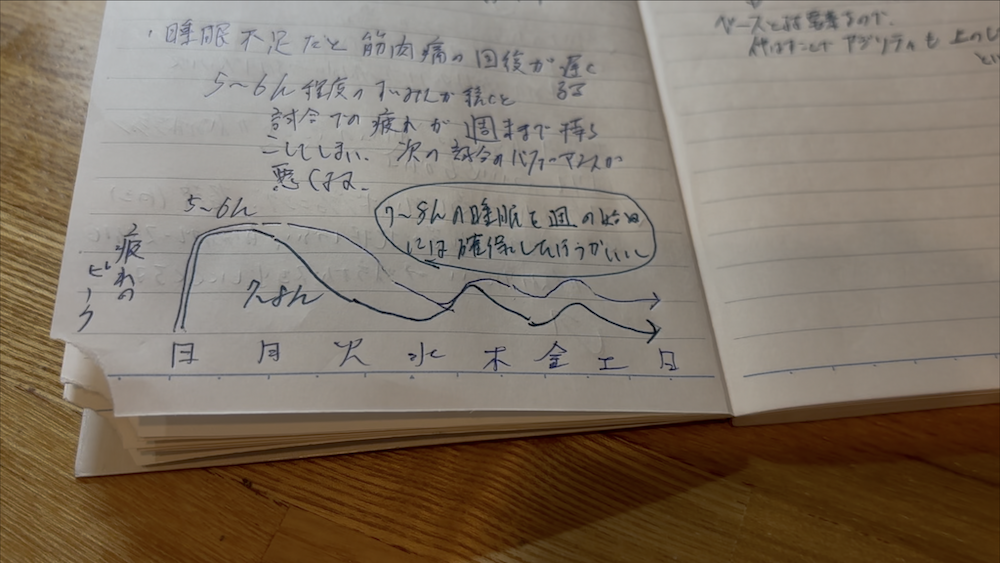 ・睡眠不足だと筋肉痛の回復が遅く
なる
5〜6h程度のすいみんが続くと
試合での疲れが週末まで持ち
こしてしまい、次の試合のパフォーマンスが
悪くなる。
7〜8hの睡眠を週の始め
には確保したほうがいい
5〜6h
疲れのピーク
7〜8h
日 月 火 水 木 金 土 日
ベースとは
も 上の